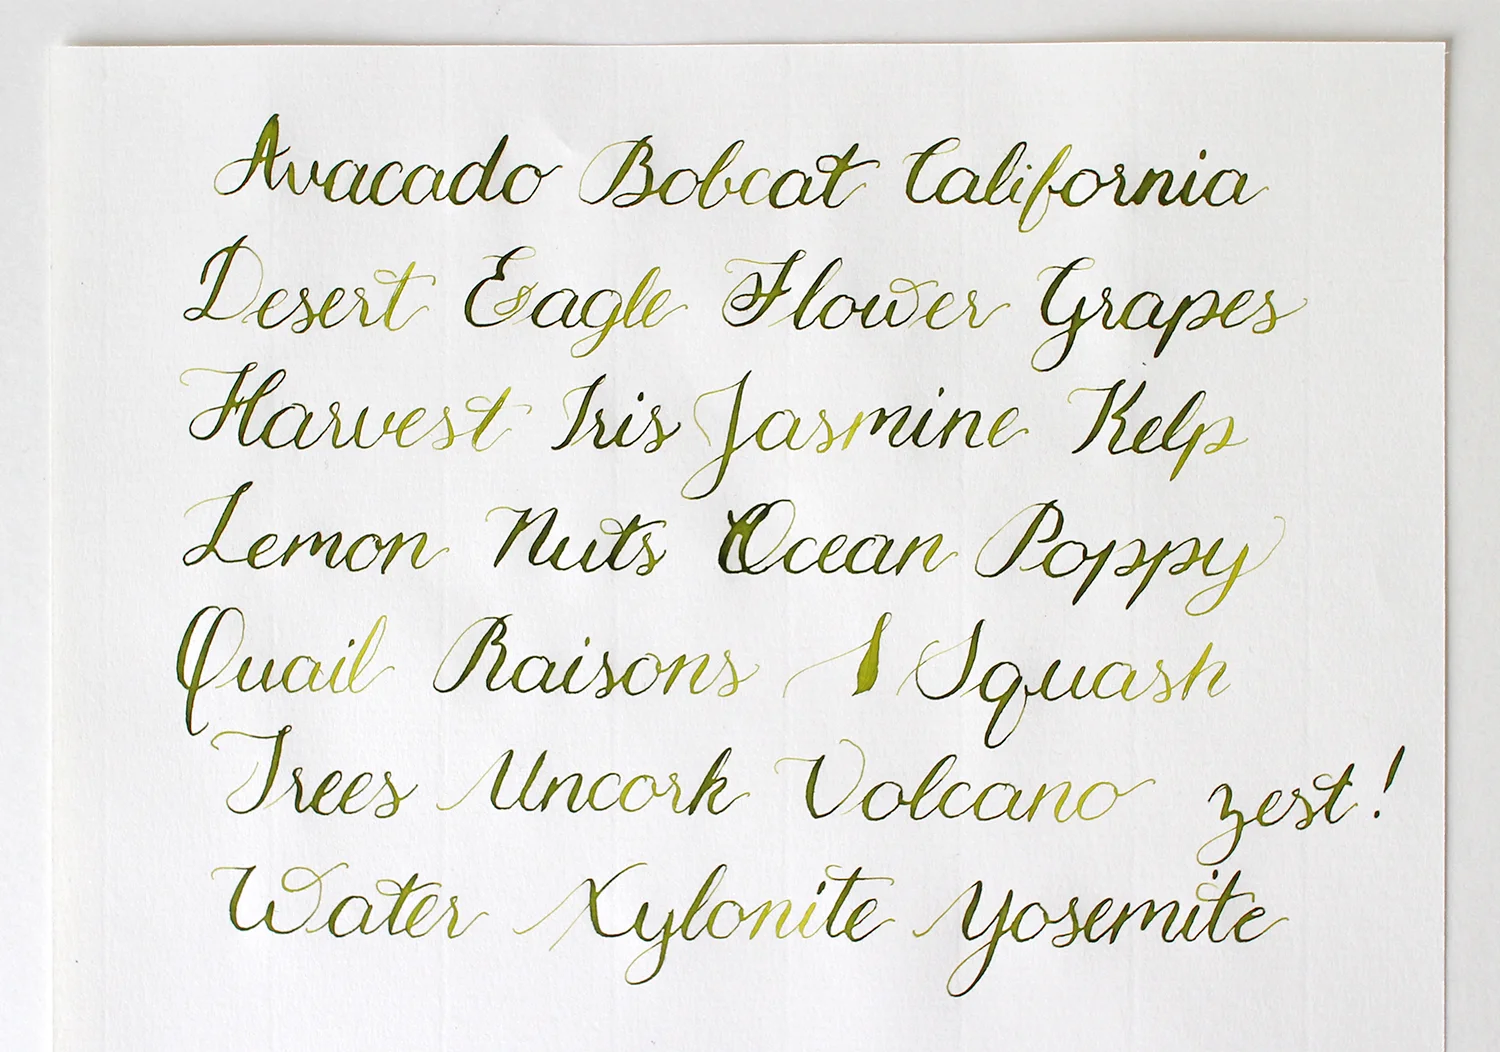 Avacado Bobcat California
Desert Eagle Flower Grapes
Harvest Iris Jasmine Kelp
Lemon Nuts Ocean Poppy
Quail Raisons Squash
Trees Uncork Volcano zest!
Water Xylonite Yosemite